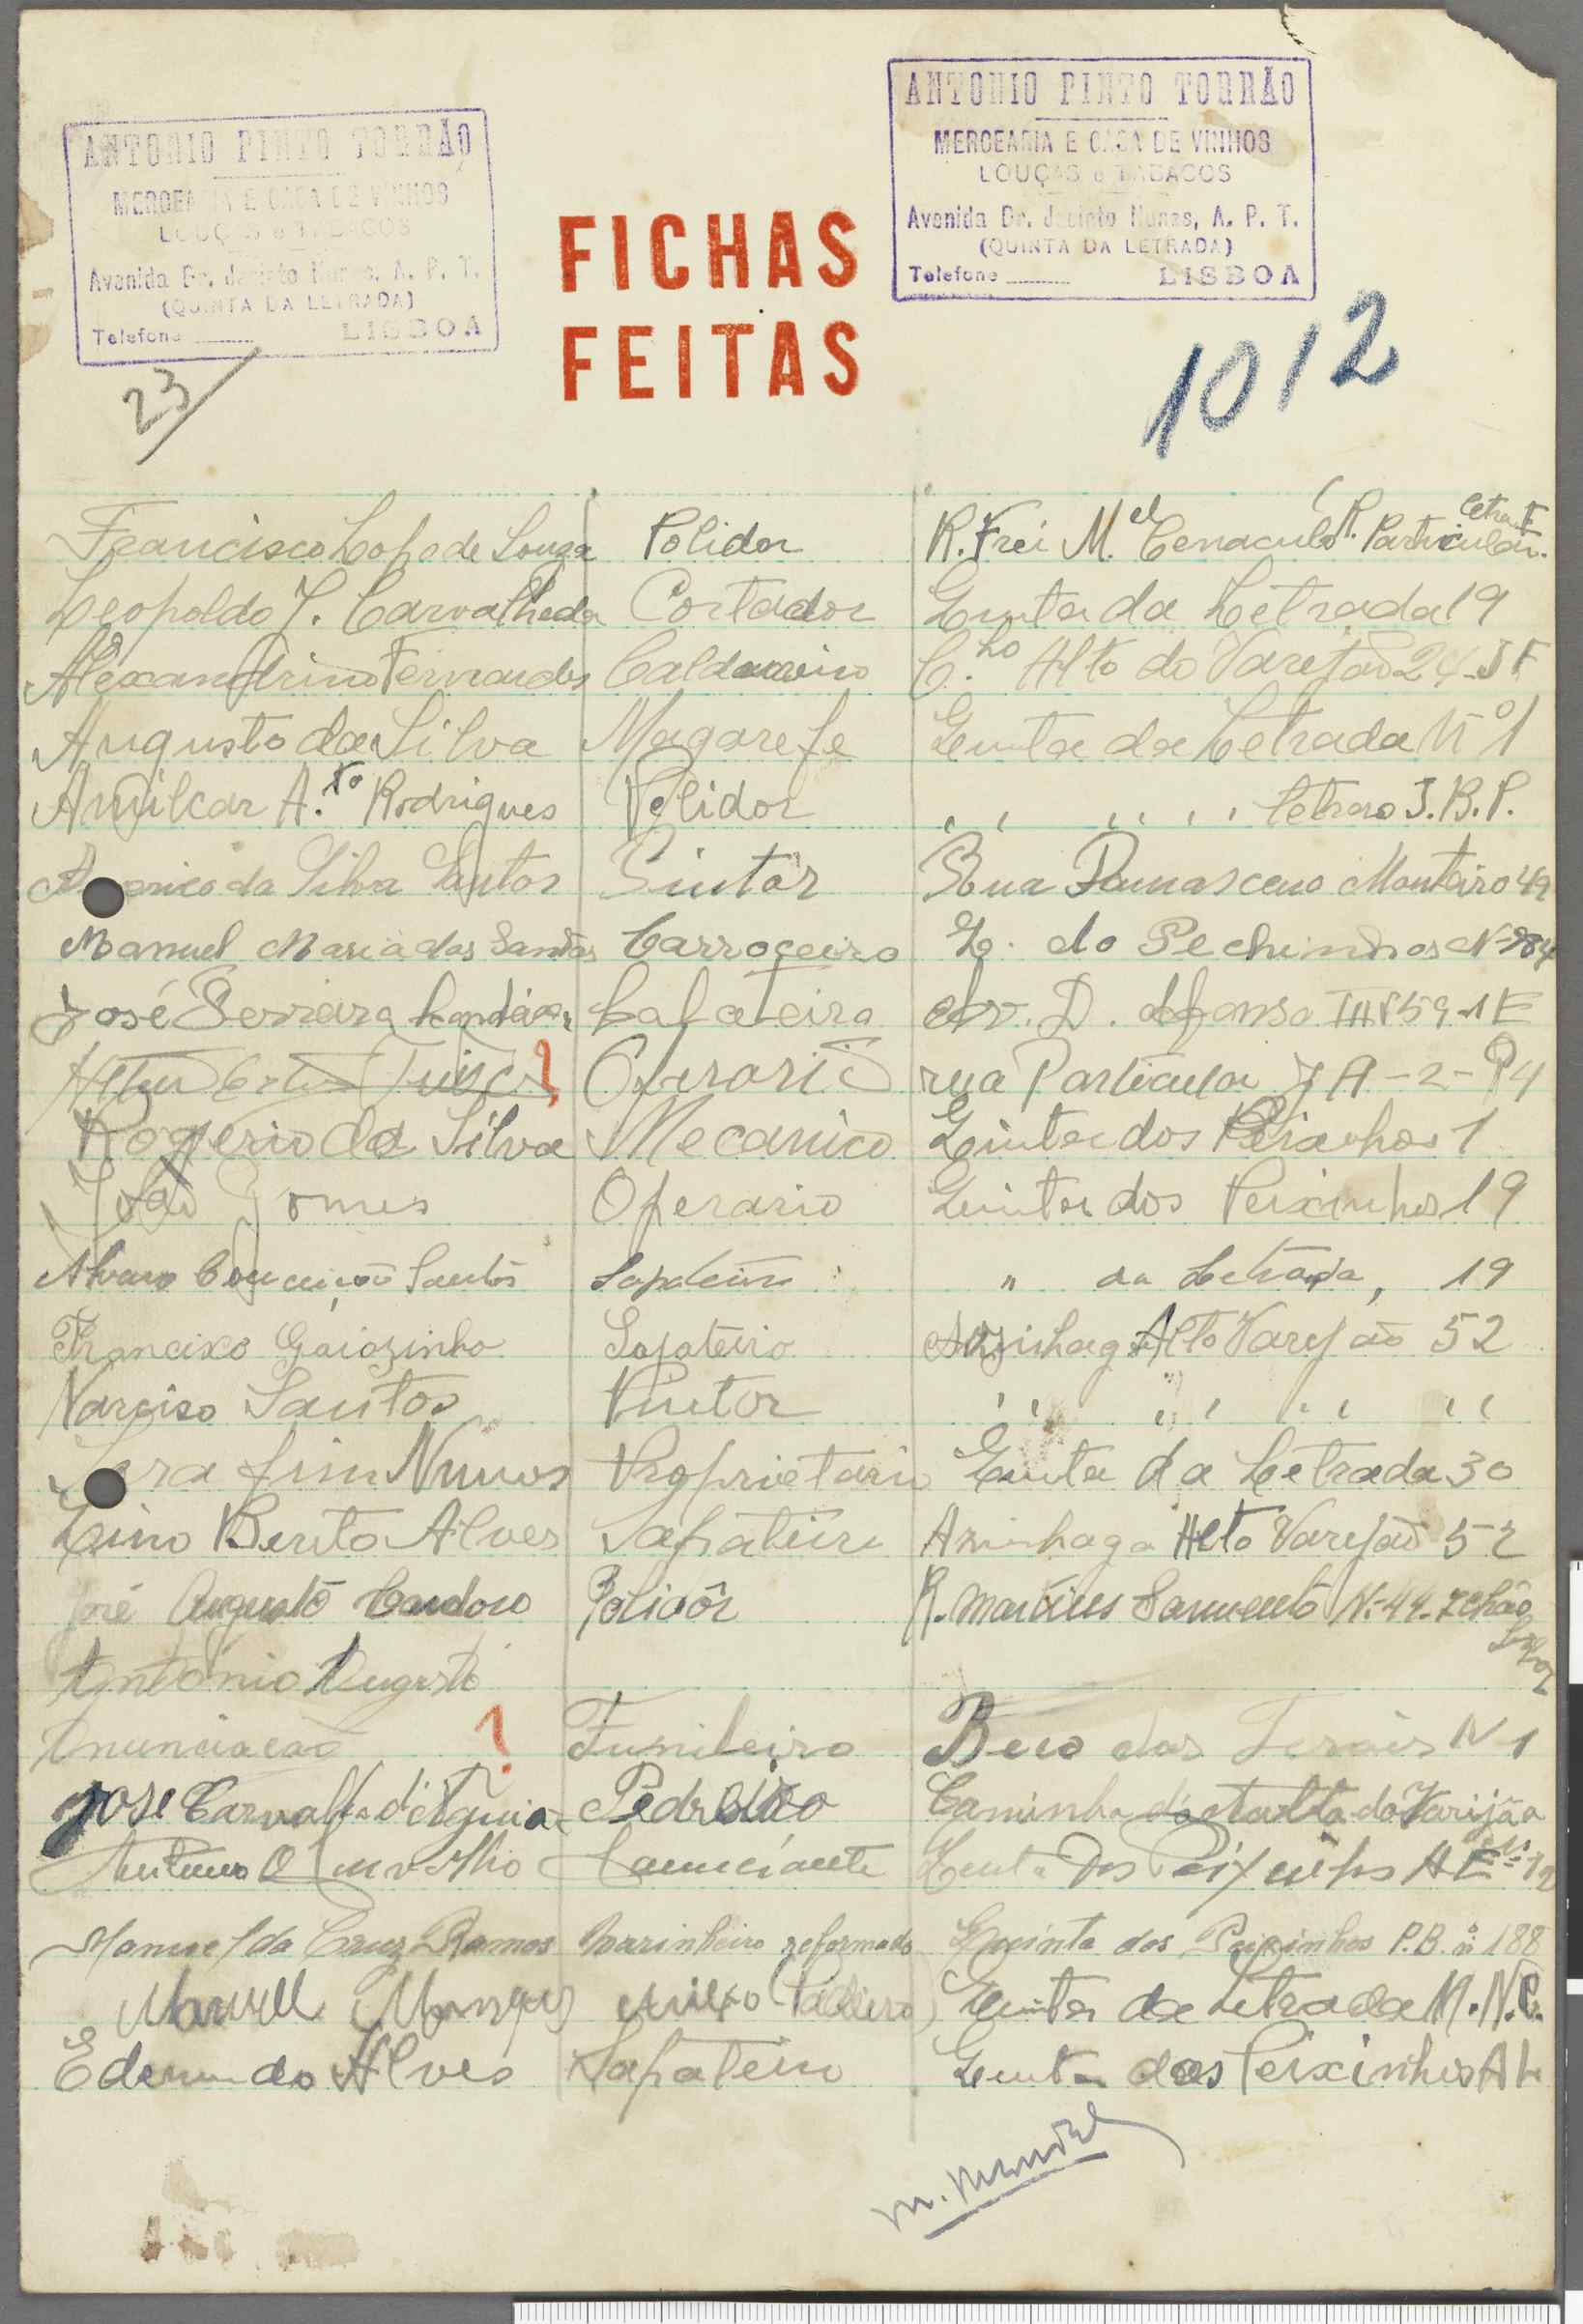 ANTONIO PINTO TORRÃO
MERCEARIA E CASA DE VINHOS
LOUÇAS e TABACOS
Avenida Dr. Jacinto Nunes, A. P. T.
(QUINTA DA LETRADA)
Telefone LISBOA
ANTONIO PINTO TORRÃO
MERCEARIA E CASA DE VINHOS
LOUÇAS e TABACOS
Avenida Dr. Jacinto Nunes, A. P. T.
(QUINTA DA LETRADA)
Telefone LISBOA
FICHAS
FEITAS
23
1012
Francisco Lopo de Souza Polidor R. Frei M.el Cenaculo R. Particular Letra F
Leopoldo J. Carvalheda Cortador Quinta da Letrada 19
Alexandrino Fernandes Caldeireiro C.ho Alto do Varejão 24-J F
Augusto da Silva Magarefe Quinta da Letrada Nº 1
Amilcar A.to Rodrigues Polidor " " " " letrero J.B.P.
da Silva Santos Pintor Rua Damasceno Monteiro 49
Manuel Maria dos Santos Carroceiro Q. do Pechinhos Nº 84
José Ferreira Cafeteira Av. D. Afonso III 59-1E
? Operario rua Particular J A-2-
Rogerio da Silva Mecanico Quinta dos 1
João Gomes Operario Quinta dos Peixinhos 19
Alvaro Conceição Santos Sapateiro " da Letrada, 19
Francisco Gaiozinho Sapateiro Azinhaga Alto Varejão 52
Narciso Santos Pintor " " " "
Serafim Nunes Proprietario Quinta da Letrada 30
Lino Berito Alves Sapateiro Azinhaga Alto Varejão 52
José Augusto Cardoso Polidôr R. Martins Sarmento N.-44-r chão
António Augusto
Anunciacão ? Funileiro Beco dos N 1
José Carvalho d'Aguiar Pedreiro Caminho do alto do Varijão
Carvalho Comerciante Quinta Dos Peixinhos
Manuel da Cruz Ramos Marinheiro reformado Quinta dos Peixinhos P.B. nº 188
Manuel Marques Quinta da Letrada M.N.C.
Edmundo Alves Sapateiro Quinta dos Peixinhos A L